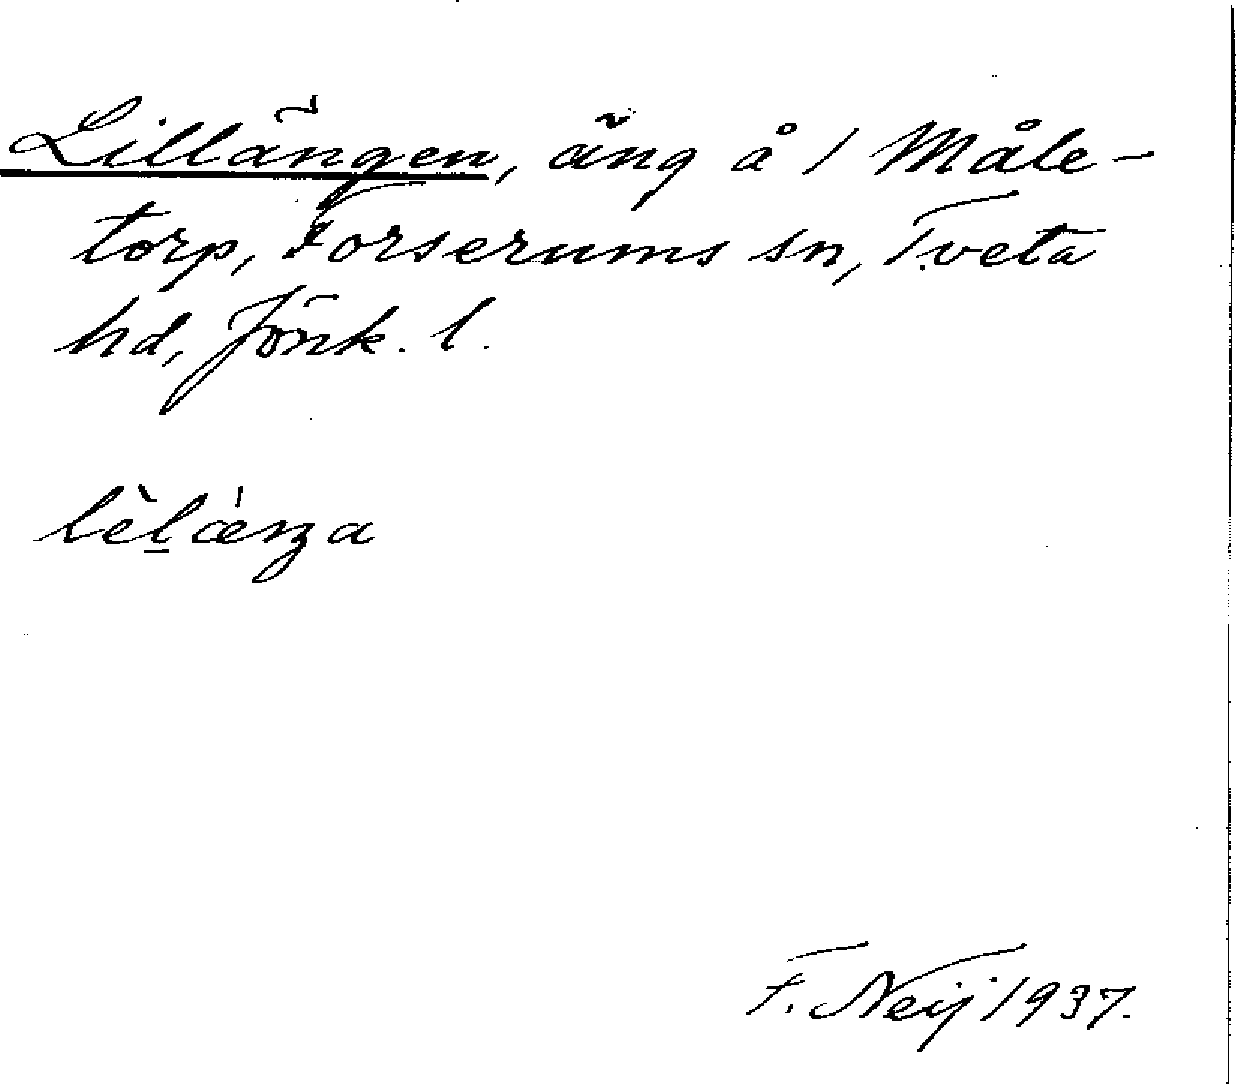 Lillängen, äng å / Måle-
torp, Forserums sn, Tveta
hd, Jönk. l.
lèl̠ǽŋa
F. Neij 1937.